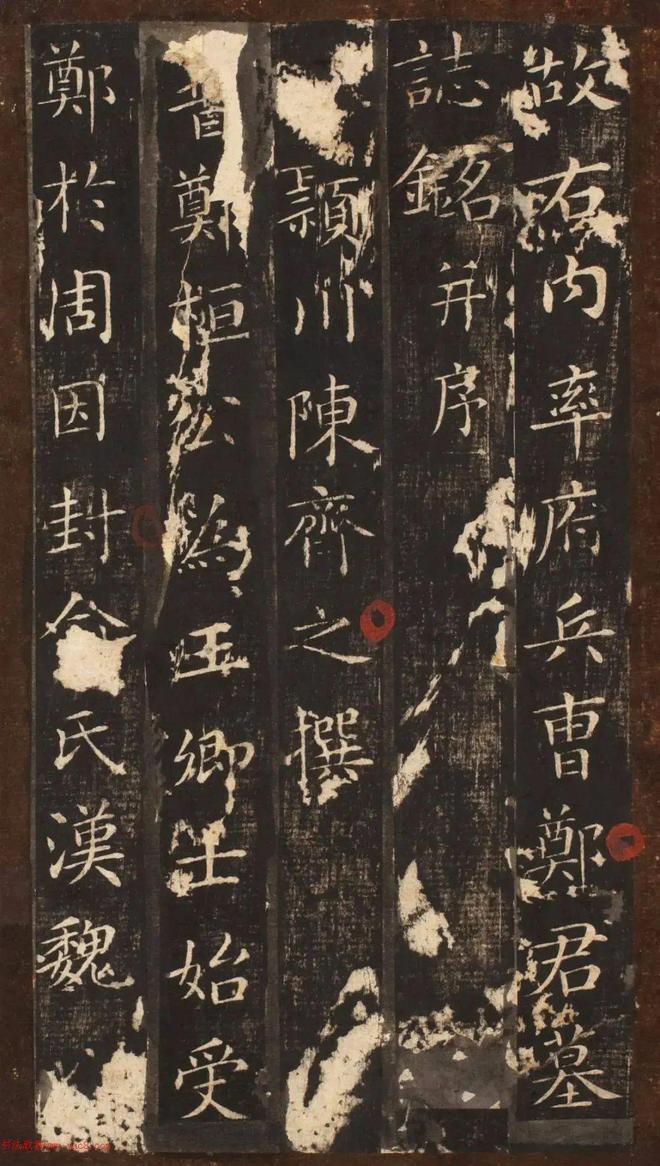 故右内率府兵曹鄭君墓
誌銘并序
潁川陳齊之撰
昔鄭桓公為王卿士始受
鄭於周因封命氏漢魏